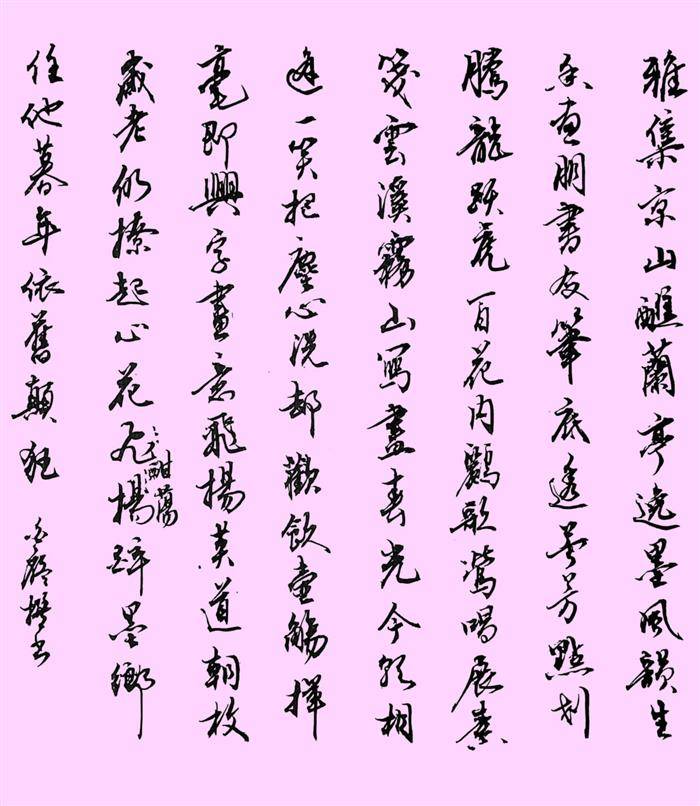 雅集京山醮蘭亭遶墨風韻生
香畫朋書友筆底透芬芳點劃
騰龍跃虎百花内鸝歌鶯唱展素
箋雲溪霧山寫盡春光今朝相
逢一笑把塵心洗却歡飲壺觴揮
毫即興字畫意飛揚莫道朝枚
歲老仍撩起心花揚醉墨鄉
酣蕩
任他暮年依舊顛狂 撰書